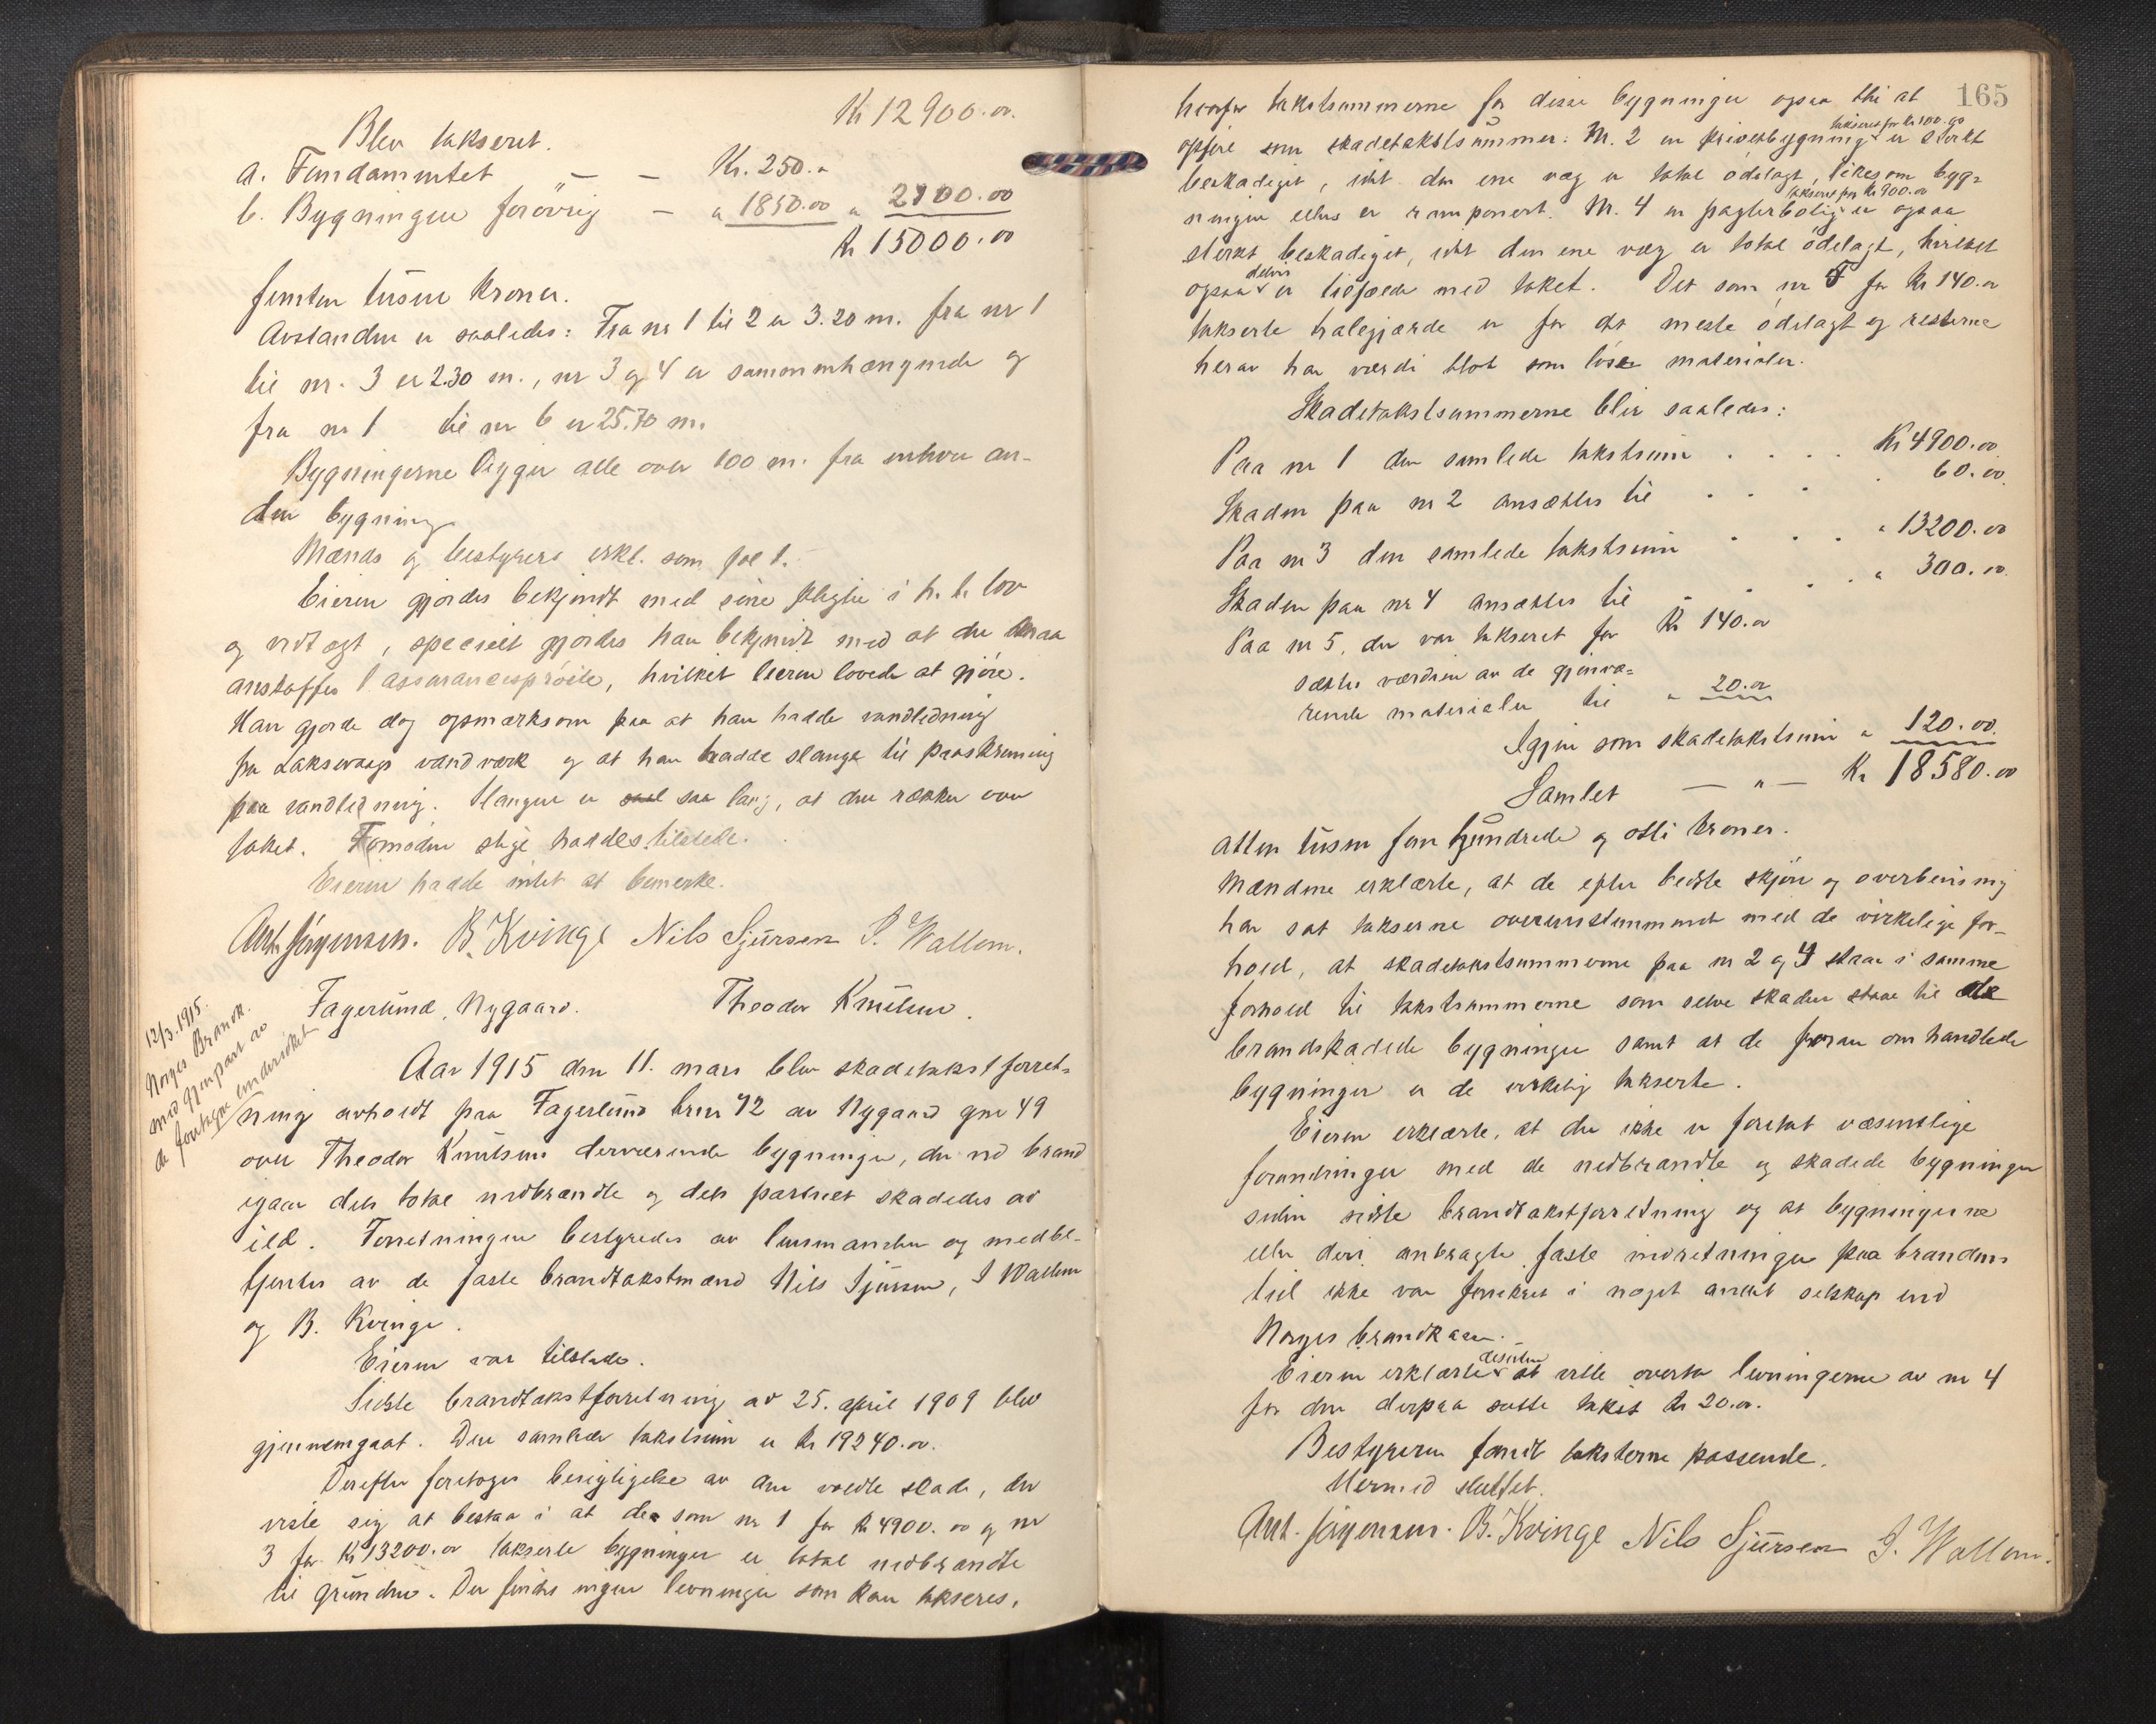 Kr 12900.00.
Blev takseret.
a. Fundamentet — — Kr. 250.00
b. Bygningen forøvrig — " 1850.00 " 2100.00
Kr 15000.00
femten tusen kroner.
Avstanden er saaledes: Fra nr 1 til 2 er 3.20 m. fra nr 1
til nr. 3 er 2.30 m., nr 3 og 4 er sammenhængende og
fra nr 1 til nr 6 er 25.70 m.
Bygningerne ligger alle over 100 m. fra enhver an-
den bygning.
Mænds og bestyrers erkl. som fol 1.
Eieren gjordes bekjendt med sine pligter i h. t. lov
og vedtægt, specielt gjordes han bekjendt med at der maa
anskaffes 1 assurancesprøite, hvilket eieren lovede at gjøre.
Han gjorde dog opmærksom paa at han hadde vandledning
fra Laksevaags vandværk og at han hadde slange til paaskruning
paa vandledning. Slangen er saa lang, at den rækker over
taket. Fornøden stige haddes tilstede.
Eieren hadde intet at bemerke.
Ant. Jørgensen. B. Kvinge Nils Sjursen S. Wallem.
Fagerlund, Nygaard. Theodor Knutsen.
12/3.1915.
Norges Brandk.
med gjenpart av
de foretagne undersøkelser
Aar 1915 den 11. mars blev skadetakstforret-
ning avholdt paa Fagerlund brnr 72 av Nygaard gnr 49
over Theodor Knutsens derværende bygninger, der ved brand
igaar dels total nedbrændte og dels partielt skadedes av
ild. Forretningen bestyredes av lensmanden og medbe-
tjentes av de faste brandtakstmænd Nils Sjursen, S Wallem
og B. Kvinge.
Eieren var tilstede.
Sidste brandtakstforretning av 25. april 1909 blev
gjennemgaat. Den samlede takstsum er Kr 19240.00.
Derefter foretoges besigtigelse av den voldte skade, der
viste sig at bestaa i at de som nr 1 for Kr 4900.00 og nr
3 for Kr 13200.00 takserte bygninger er total nedbrændte
til grunden. Der findes ingen levninger som kan takseres,
165
hvorfor takstsummerne for disse bygninger ogsaa blir at
takseret for Kr 100.00
opføre som skadetakstsummer. Nr. 2 en privetbygning er sterkt
beskadiget, idet den ene væg er total ødelagt, likesom byg-
takseret for Kr 900.00
ningen ellers er ramponert. Nr. 4 en pagterbolig er ogsaa
sterkt beskadiget, idet den ene væg er total ødelagt, hvilket
delvis
ogsaa er tilfælde med taket. Det som nr 5 for Kr 140.00
takserte halegjærde er for det meste ødelagt og resterne
herav har værdi blot som løse materialer.
Skadetakstsummerne blir saaledes:
Paa nr 1 den samlede takstsum . . . . Kr 4900.00
Skaden paa nr 2 ansættes til . . . . 60.00
Paa nr 3 den samlede takstsum . . . " 13200.00
Skaden paa nr 4 ansættes til . . . " 300.00
Paa nr 5, der var takseret for Kr 140.00
sættes værdien av de gjenvæ-
rende materialer til " 20.00
Igjen som skadetakstsum " 120.00.
Samlet — " — Kr 18580.00
atten tusen fem hundrede og otti kroner.
Mændene erklærte, at de efter bedste skjøn og overbevisning
har sat takserne overensstemmende med de virkelige for-
hold, at skadetakstsummerne paa nr 2 og 4 staar i samme
forhold til takstsummerne som selve skaden staar til de
brandskadede bygninger samt at de foran omhandlede
bygninger er de virkelig takserte.
Eieren erklærte, at der ikke er foretat væsentlige
forandringer med de nedbrændte og skadede bygninger
siden sidste brandtakstforretning og at bygningerne
eller deri anbragte faste indretninger paa brandens
tid ikke var forsikret i noget andet selskap end
Norges brandkasse.
desuten
Eieren erklærte at ville overta levningerne av nr 4
for den derpaa satte takst Kr 20.00.
Bestyreren fandt taksterne passende.
Hermed sluttet.
Ant. Jørgensen. B. Kvinge Nils Sjursen S. Wallem.